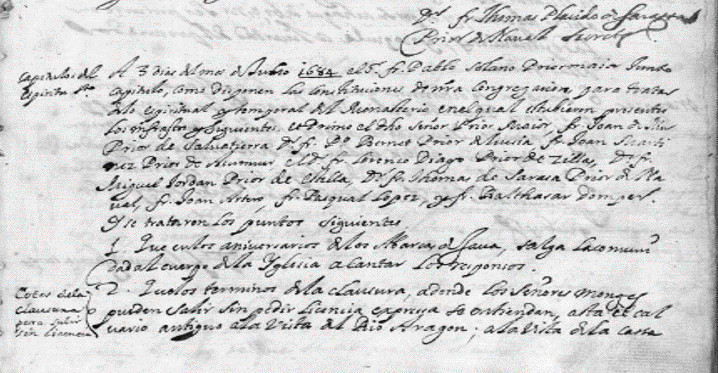 Dr. fr. Thomas Placido de Sarassa
Prior de Naval Secret.
Capitulos del A 3 dias del mes de Julio 1684 el S. fr. Pablo Solano Prior maior Junto
Espiritu Sto. capitulo, como disponen las constituciones de nra congregacion, para tratar
de lo espiritual y temporal del Monasterio en el qual estubieron presentes
los infrascr. y siguientes. et Primo el dho Señor Prior Maior, fr. Joan de
Prior de Salvatierra Dr. fr. Po. Bernet Prior de Luesia, fr. Joan Marti
nez Prior de el Dr. fr. Lorenco Diago Prior de Zillas, Dr. fr.
Miguel Jordan Prior de Estella, Dr. fr. Thomas de Sarasa Prior de Na
val, fr. Joan Artro, fr. Pasqual Lopez, y fr. Balthasar Domper.
Y se trataron los puntos siguientes
1. Que en los aniversarios de los Abarca de Gava, salga la comuni
dad al cuerpo de la Yglesia a cantar los responsos.
Cotos de la 2. Que los terminos de la clausura, adonde los Señores monges
clausura pueden salir sin pedir licencia expresa se entiendan, asta el cal
para salir vario antiguo a la Vista del Rio Aragon; a la Vista de la casa
sin licencia